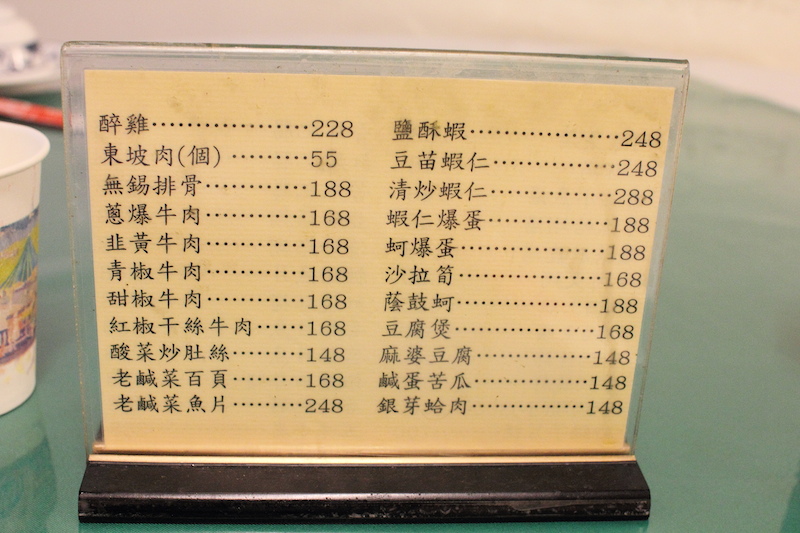 醉雞··················228
東坡肉(個)·········55
無錫排骨············188
蔥爆牛肉············168
韭黃牛肉············168
青椒牛肉············168
甜椒牛肉············168
紅椒干絲牛肉······168
酸菜炒肚絲·········148
老鹹菜百頁·········168
老鹹菜魚片·········248
鹽酥蝦··················248
豆苗蝦仁···············248
清炒蝦仁···············288
蝦仁爆蛋···············188
蚵爆蛋··················188
沙拉筍··················168
蔭鼓蚵··················188
豆腐煲··················168
麻婆豆腐···············148
鹹蛋苦瓜···············148
銀芽蛤肉···············148